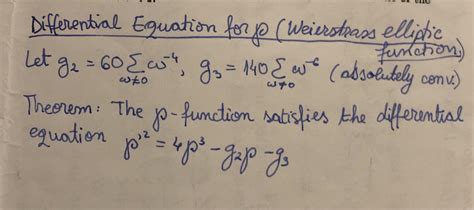 Differential Equation for ℘ (Weierstrass elliptic
function)
Let g₂ = 60 Σ_{ω≠0} ω⁻⁴, g₃ = 140 Σ_{ω≠0} ω⁻⁶ (absolutely conv.)
Theorem: The ℘-function satisfies the differential
equation ℘'² = 4℘³ - g₂℘ - g₃